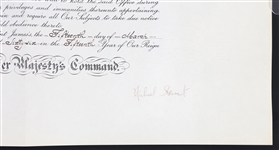 and to hold the said Office during
privileges and immunities thereunto appertaining
and require all Our Subjects to take due notice
dance thereto.
St James's the Fifteenth day of March
Sixty six in the Fifteenth Year of Our Reign
er Majesty's Command.
Michael Stewart